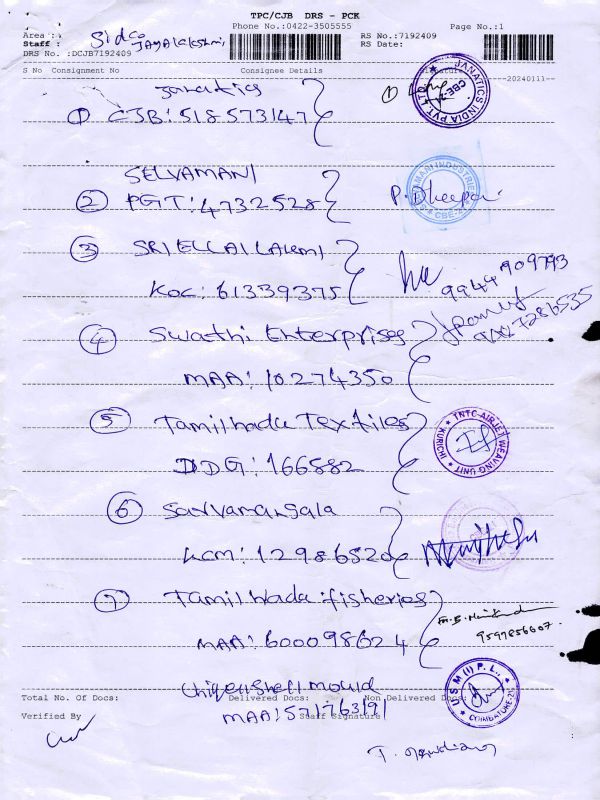 TPC/CJB DRS - PCK
Phone No.:0422-3505555 Page No.:1
Area : Sidco RS No.:7192409
Staff : Jayalakshmi RS Date:
DRS No. :DCJB7192409
S No Consignment No Consignee Details Signature
20240111
Janatics ① 
① CJB: 518573147
JANATICS INDIA PVT. LTD. CBE-21
SELVAMANI
② PGT: 4732528 P. Dheepa
INDUSTRIES CBE-21
③ SRI ELLAI LAXMI
KOC: 61339375 9944909793
④ Swathi Enterprises
MAA: 10274350
⑤ Tamilnadu Textiles
DDG: 166882
TNTC-AIRJET WEAVING UNIT KURICHI
⑥ Sarvamangala
KCM: 129865206
⑦ Tamil Nadu fisheries
MAA: 600098624 9597856607
Uniqueshell mould
Total No. Of Docs: Delivered Docs: Non Delivered Docs:
MAA: 571763191
Verified By Staff Signature
U S M (I) P. L., COIMBATORE-21